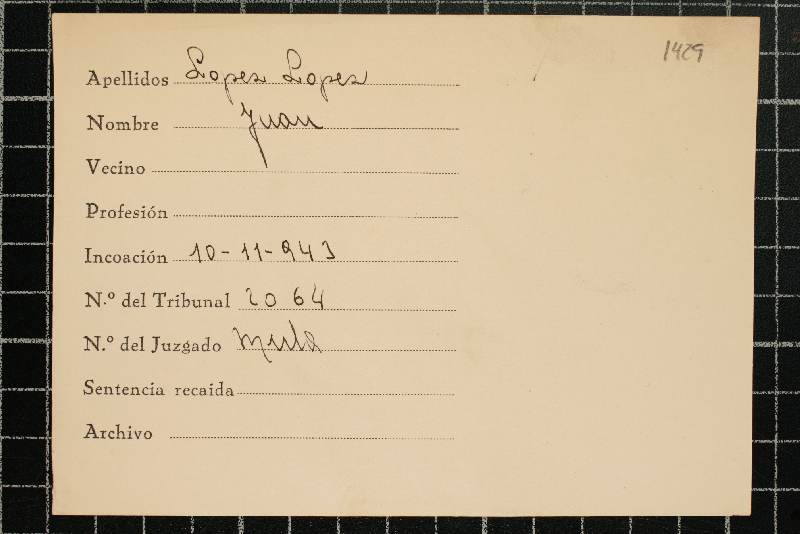 1429
Apellidos Lopez Lopez
Nombre Juan
Vecino
Profesión
Incoación 10-11-943
N.º del Tribunal 2064
N.º del Juzgado Mula
Sentencia recaida
Archivo